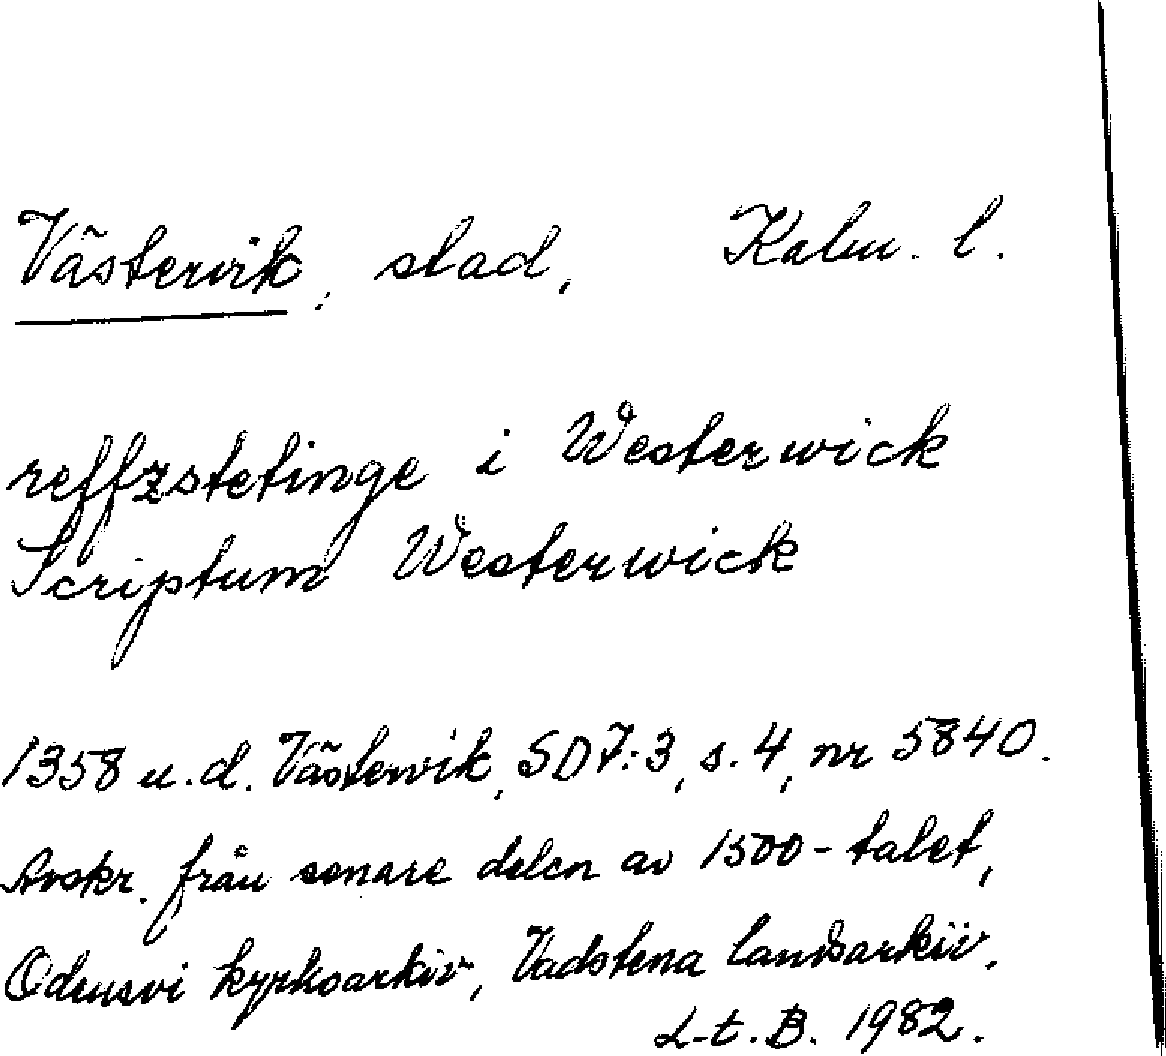 Västervik, stad, Kalm. l.
reffzstetinge i Westerwick
Scriptum Westerwick
1358 u.d. Västervik, SD 7:3, s. 4, nr 5840.
Avskr. från senare delen av 1500-talet,
Odensvi kyrkoarkiv, Vadstena landsarkiv.
L-t. B. 1982.